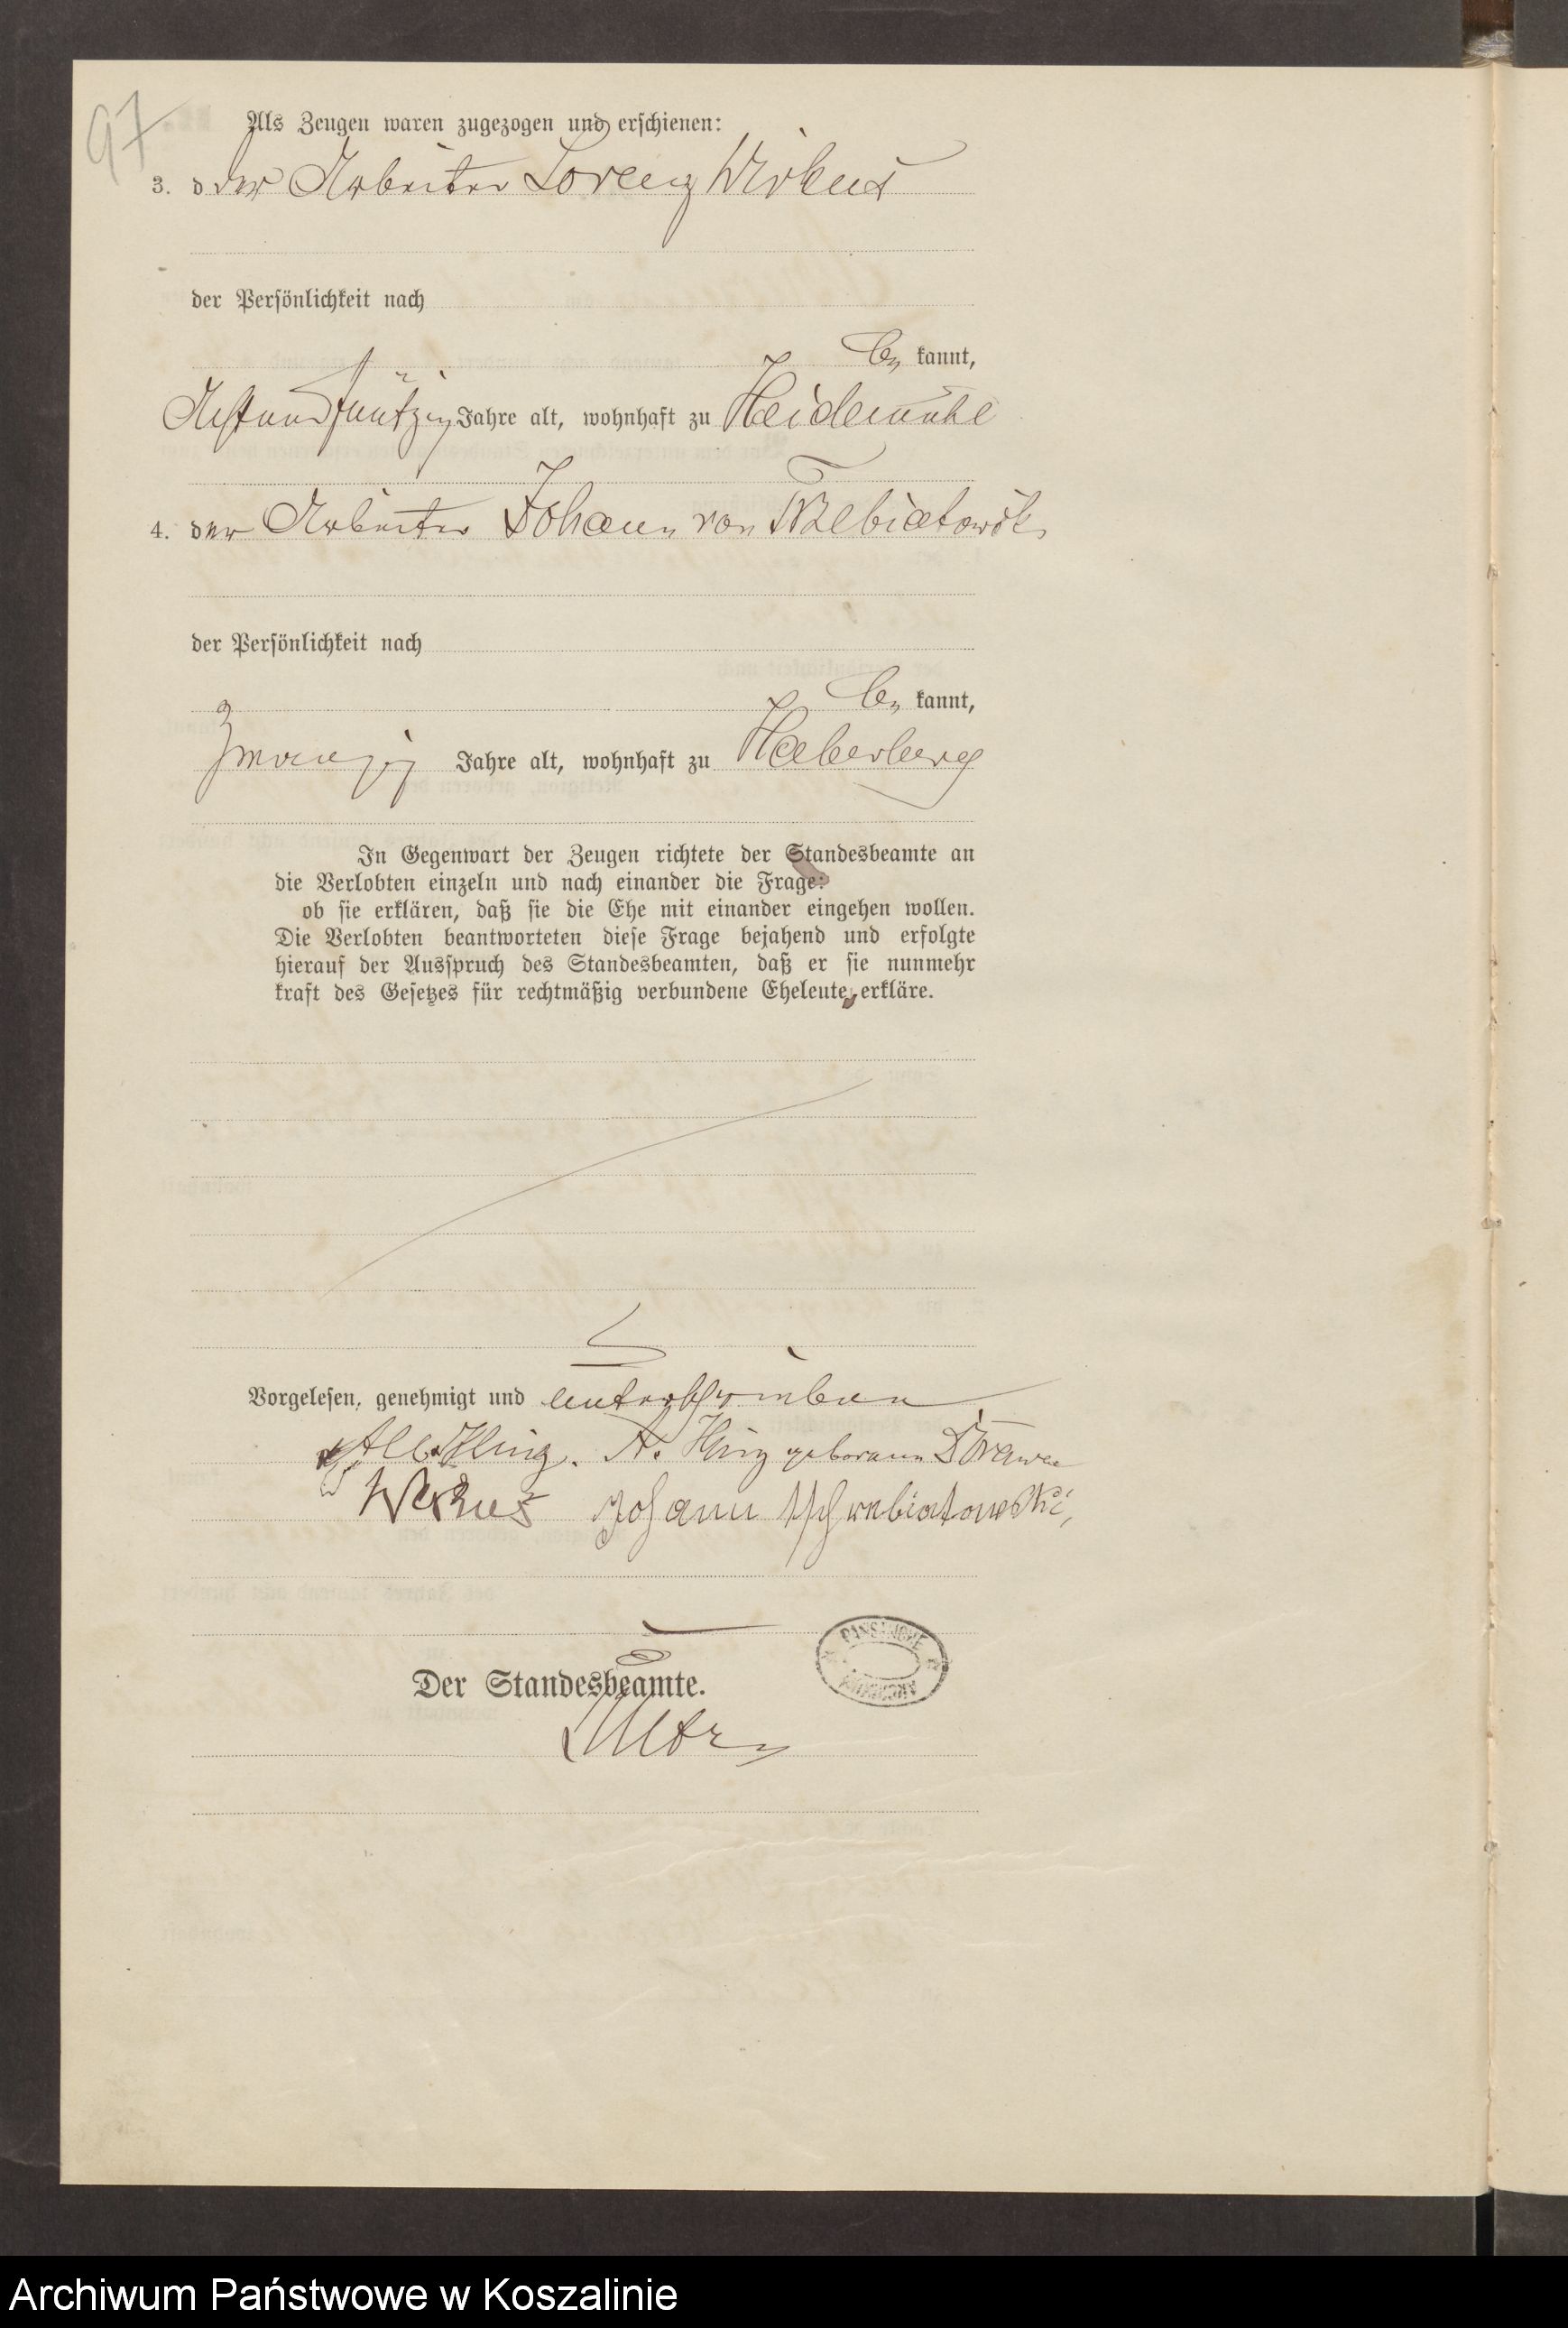 97
Als Zeugen waren zugezogen und erschienen:
3. d der Arbeiter Lorenz Wirkus
der Persönlichkeit nach
be kannt,
Achtundfünfzig Jahre alt, wohnhaft zu Heidemühle
4. der Arbeiter Johann von Trzebiatowski
der Persönlichkeit nach
be kannt,
Zwanzig Jahre alt, wohnhaft zu Haberberg
In Gegenwart der Zeugen richtete der Standesbeamte an
die Verlobten einzeln und nach einander die Frage:
ob sie erklären, daß sie die Ehe mit einander eingehen wollen.
Die Verlobten beantworteten diese Frage bejahend und erfolgte
hierauf der Ausspruch des Standesbeamten, daß er sie nunmehr
kraft des Gesetzes für rechtmäßig verbundene Eheleute erkläre.
Vorgelesen, genehmigt und unterschrieben
A. geborene
Wirkus Johann
Der Standesbeamte.
Archiwum Państwowe w Koszalinie